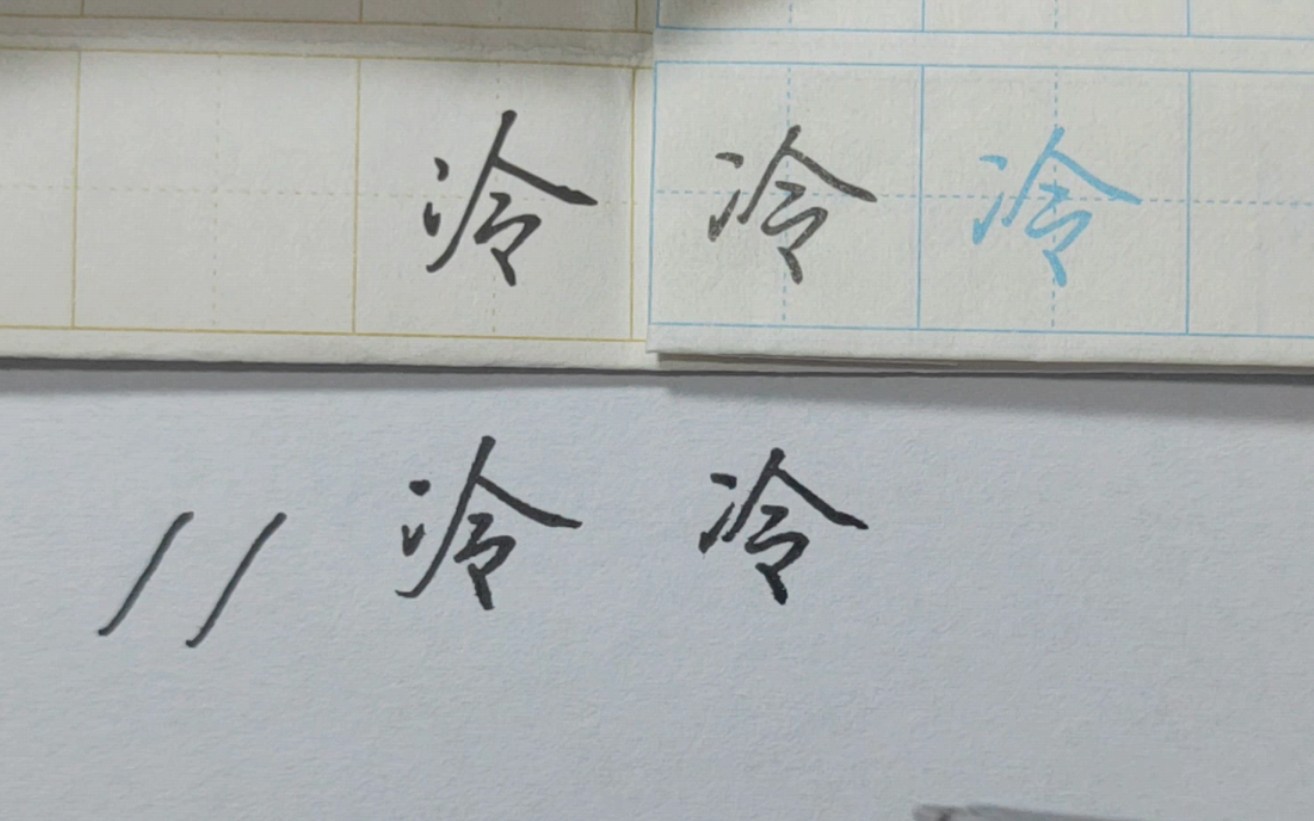 冷 冷 冷
冷 冷